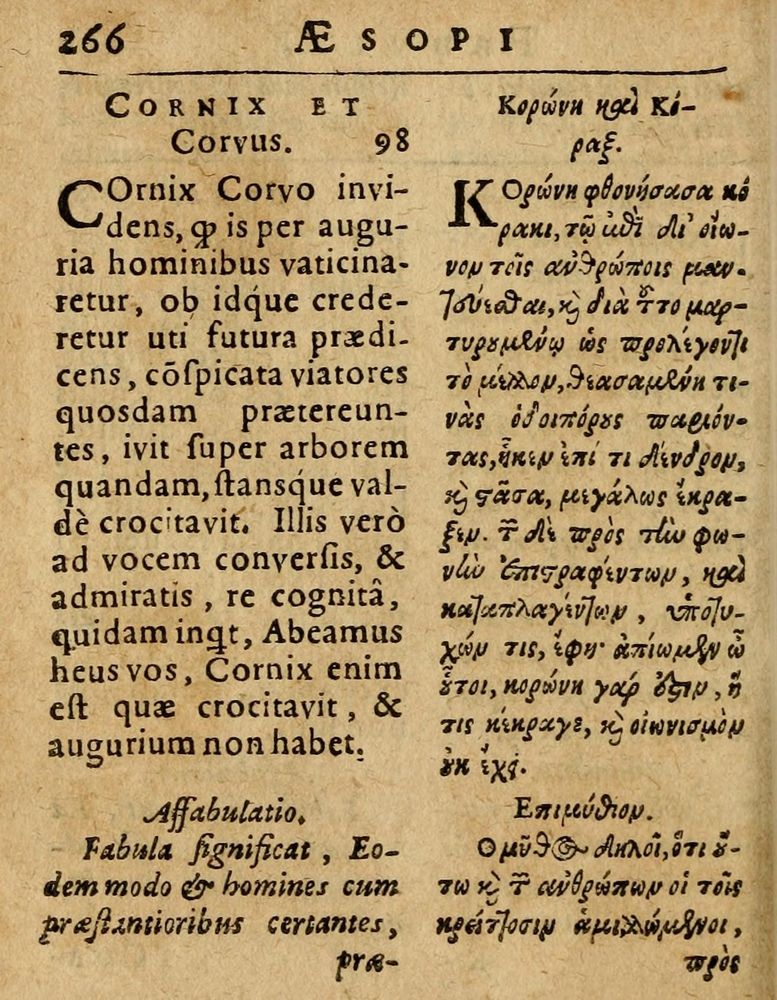 266 ÆSOPI
CORNIX ET
CORVUS. 98
COrnix Corvo invi-
dens, ꝙ is per augu-
ria hominibus vaticina-
retur, ob idq́ue crede-
retur uti futura prædi-
cens, cõſpicata viatores
quosdam prætereun-
tes, ivit ſuper arborem
quandam, ſtansq́ue val-
dè crocitavit. Illis verò
ad vocem converſis, &
admiratis, re cognitâ,
quidam inqt, Abeamus
heus vos, Cornix enim
eſt quæ crocitavit, &
augurium non habet.
Affabulatio.
Fabula ſignificat, Eo-
dem modo & homines cum
præſtantioribus certantes,
præ-
Κορώνη καὶ Κό-
ραξ.
ΚΟρώνη φθονήσασα κό
ρακι, τῷ ἀπὸ δι' οἰω-
νον τοῖς ἀνθρώποις μαν-
τεύεσθαι, καὶ διὰ τοῦτο μαρ-
τυρουμένῳ ὡς προλέγοντι
τὸ μέλλον, θεασαμένη τι-
νὰς ὁδοιπόρους παριόν-
τας, ἧκεν ἐπί τι δένδρον,
καὶ στᾶσα, μεγάλως ἔκρα-
ξεν. τῶν δὲ πρὸς τὴν φω-
νὴν ἐπιστραφέντων, καὶ
καταπλαγέντων, ὑποτυ-
χών τις, ἔφη· ἀπίωμεν ὦ
οὗτοι, κορώνη γάρ ἐστιν, ἥ
τις κέκραγε, καὶ οἰωνισμὸν
οὐκ ἔχει.
Επιμύθιον.
Ο μῦθος δηλοῖ, ὅτι οὕ-
τω καὶ τῶν ἀνθρώπων οἱ τοῖς
κρείττοσιν ἁμιλλώμενοι,
πρὸς